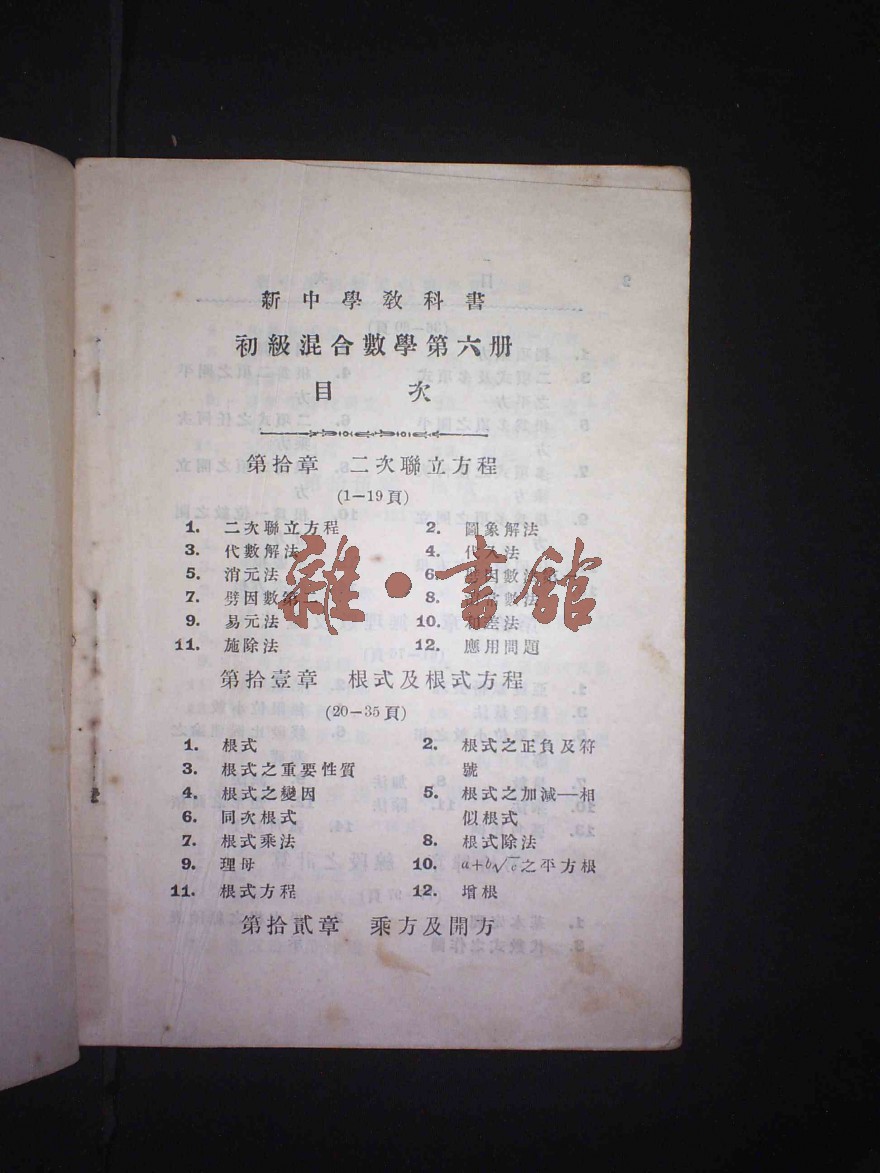 新中學敎科書
初級混合數學第六册
目 次
第拾章 二次聯立方程
(1—19頁)
1. 二次聯立方程 2. 圖象解法
3. 代數解法 4. 代入法
5. 消元法 6. 劈因數法
7. 劈因數第二 8. 常數法
9. 易元法 10. 和差法
11. 施除法 12. 應用問題
第拾壹章 根式及根式方程
(20—35頁)
1. 根式 2. 根式之正負及符
3. 根式之重要性質 號
4. 根式之變因 5. 根式之加減—相
6. 同次根式 似根式
7. 根式乘法 8. 根式除法
9. 理母 10. a+b√c之平方根
11. 根式方程 12. 增根
第拾貳章 乘方及開方
雜·書館